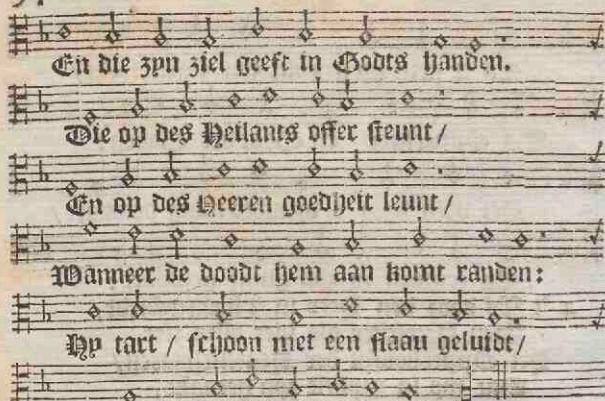 En die zyn ziel geeft in Godts handen.
Die op des Heilants offer steunt /
En op des Heeren goedheit leunt /
Wanneer de doodt hem aan komt randen:
Hy tart / schoon met een flaau geluidt /